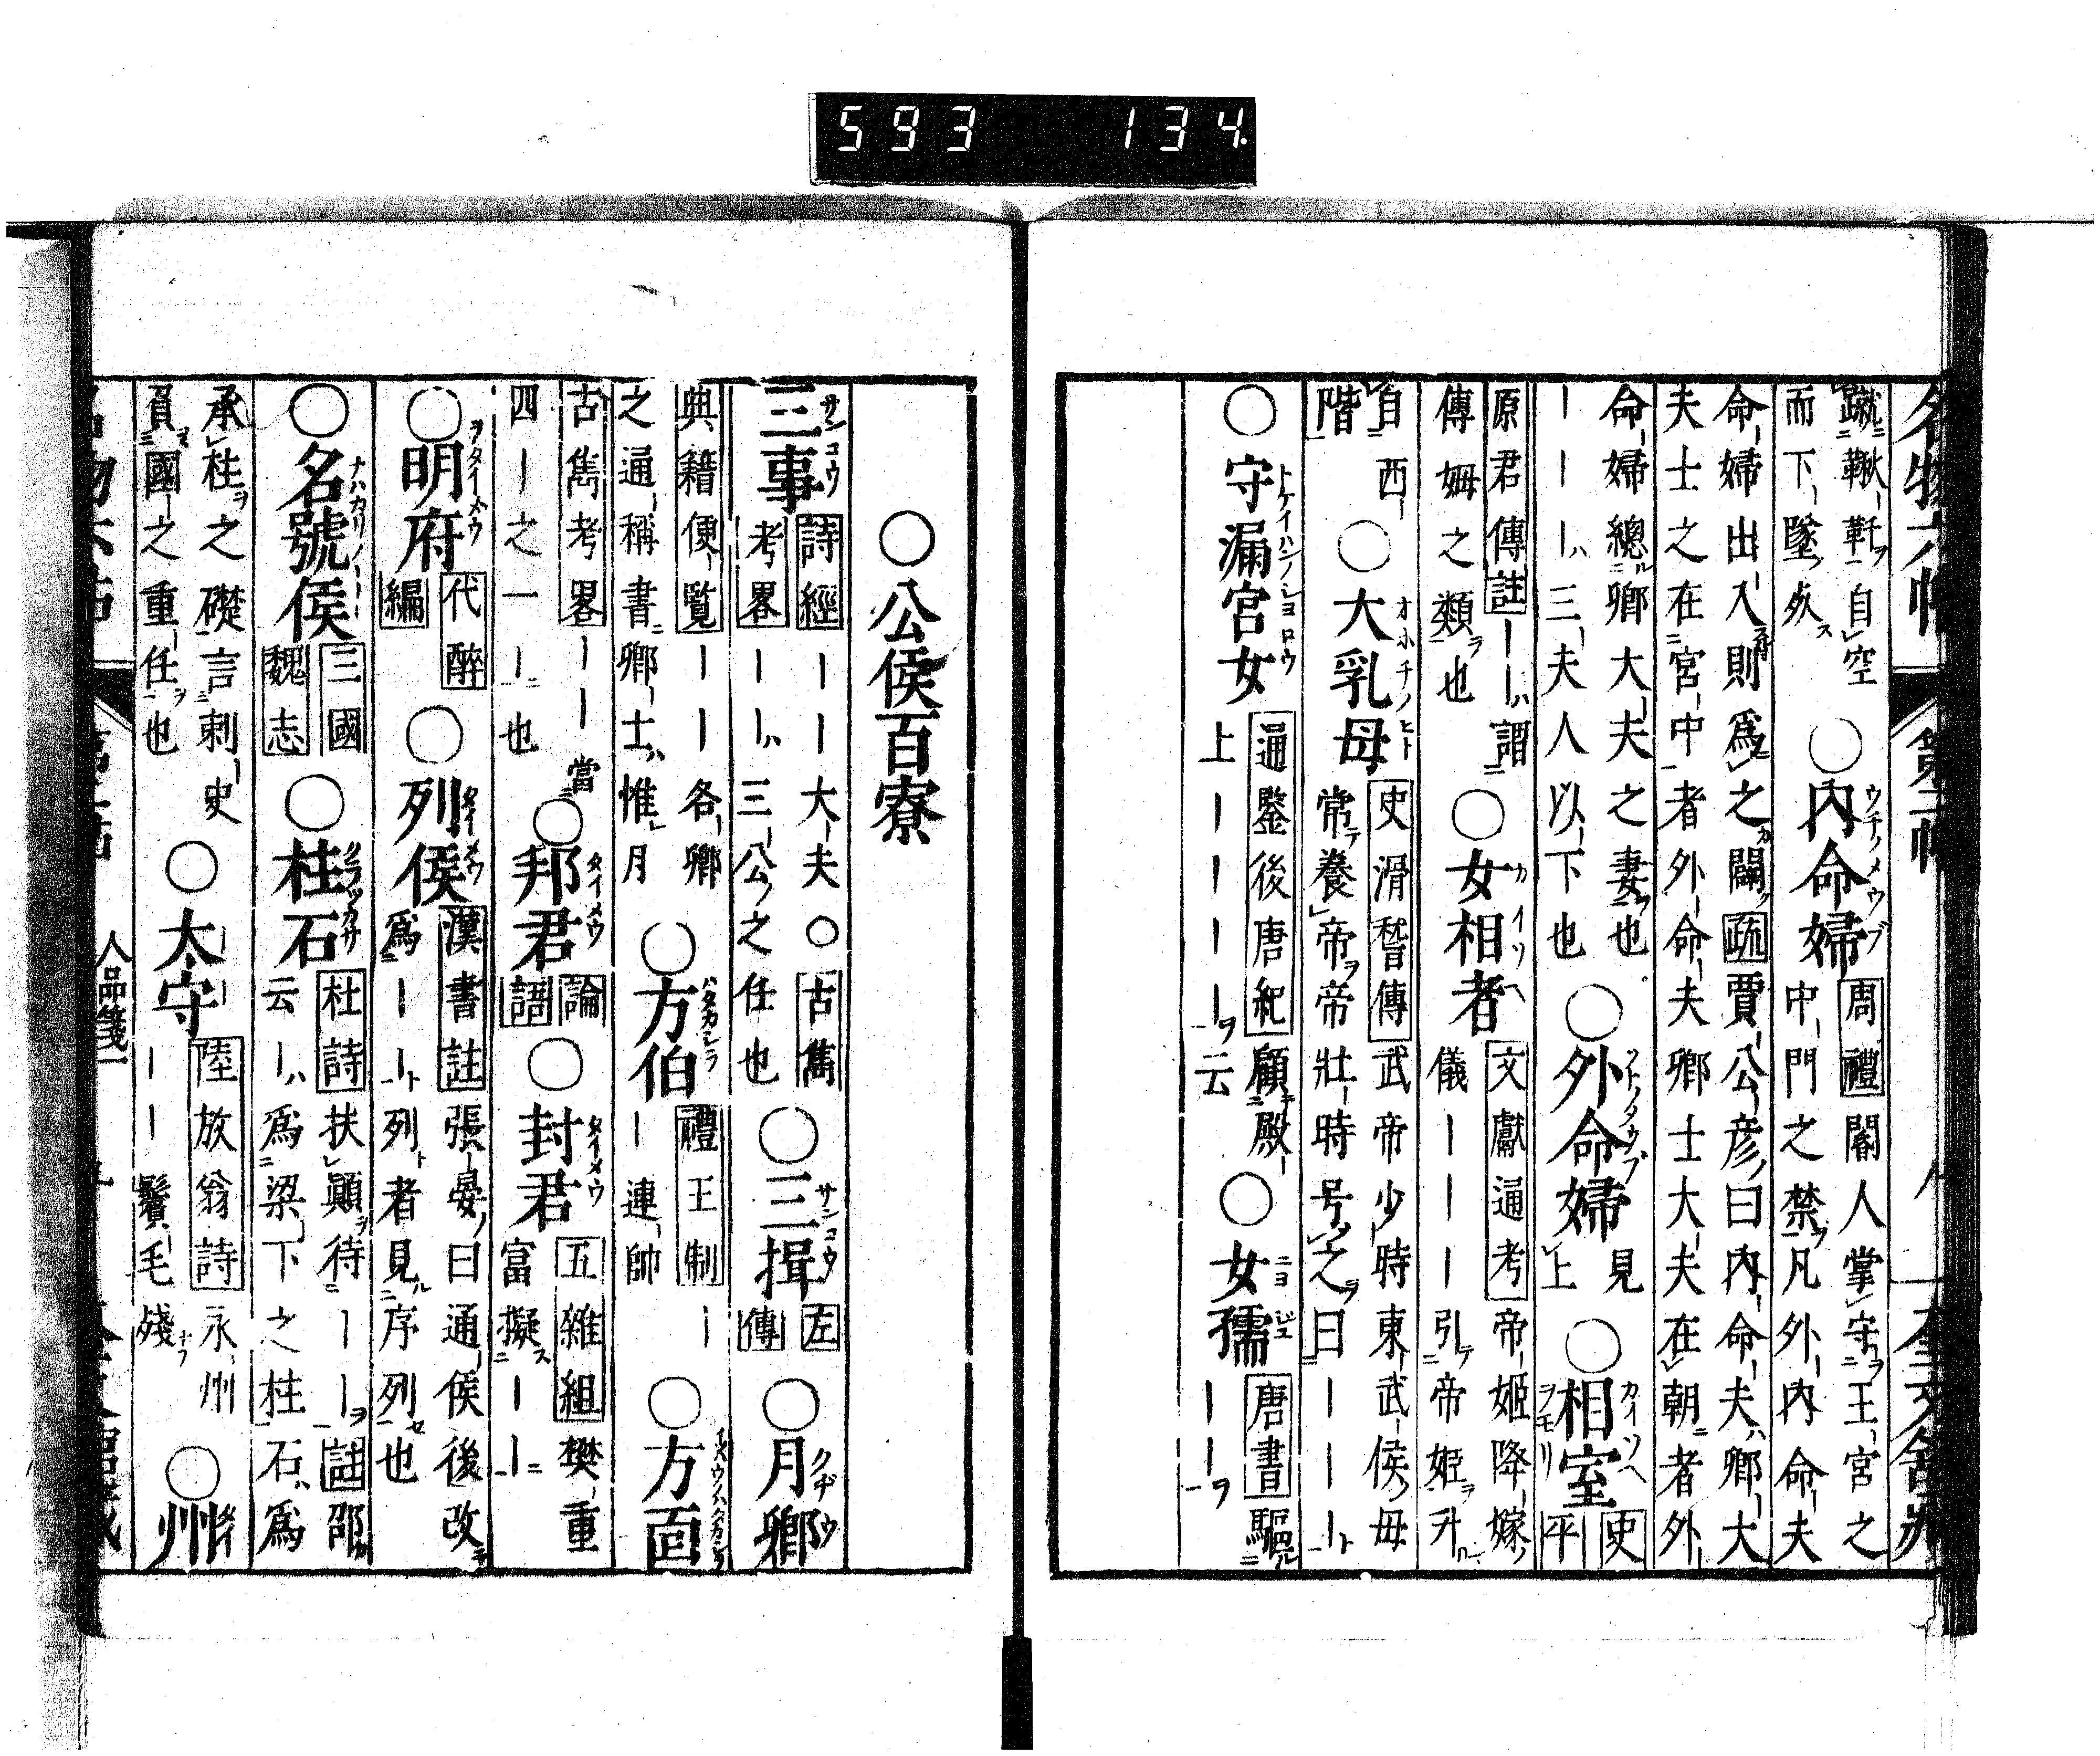 593 134
名物六帖 第二帖
蹴鞦韆自空
而下墜死
○内命婦
周禮閽人掌守王宮之
中門之禁凡外内命夫
命婦出入則爲之闢疏賈公彦曰内命夫卿大
夫士之在宮中者外命夫卿士大夫在朝者外
命婦總卿大夫之妻也
ーーー三夫人以下也
○外命婦
見
上
○相室
史
平
原君傳註ーー謂
傳姆之類也
○女相者
文獻通考帝姫降嫁
儀ーーー引帝姫升
自西
階
○大乳母
史滑稽傳武帝少時東武侯母
常養帝帝壯時号之曰ーーー
○守漏宮女
通鑒後唐紀顧殿
上ーーーー云
○女孺
唐書驅
ーー
○公侯百寮
三事
詩經ーー大夫○古雋
考畧ーー三公之任也
○三揖
左
傳
○月卿
典籍便覧ーー各卿
之通稱書卿士惟月
○方伯
禮王制ー
ー連帥
○方面
古雋考畧ーー當
四ー之一ー也
○邦君
論
語
○封君
五雜組樊重
富擬ーー
○明府
代醉
編
○列侯
漢書註張晏曰通侯後改
爲ーー列者見序列也
○名號侯
三國
魏志
○柱石
杜詩扶顛待ーー註邵
云ー爲梁下之柱石爲
承柱之礎言刺史
負國之重任也
○太守
陸放翁詩永州
ーー鬢毛殘
○州
人品箋一